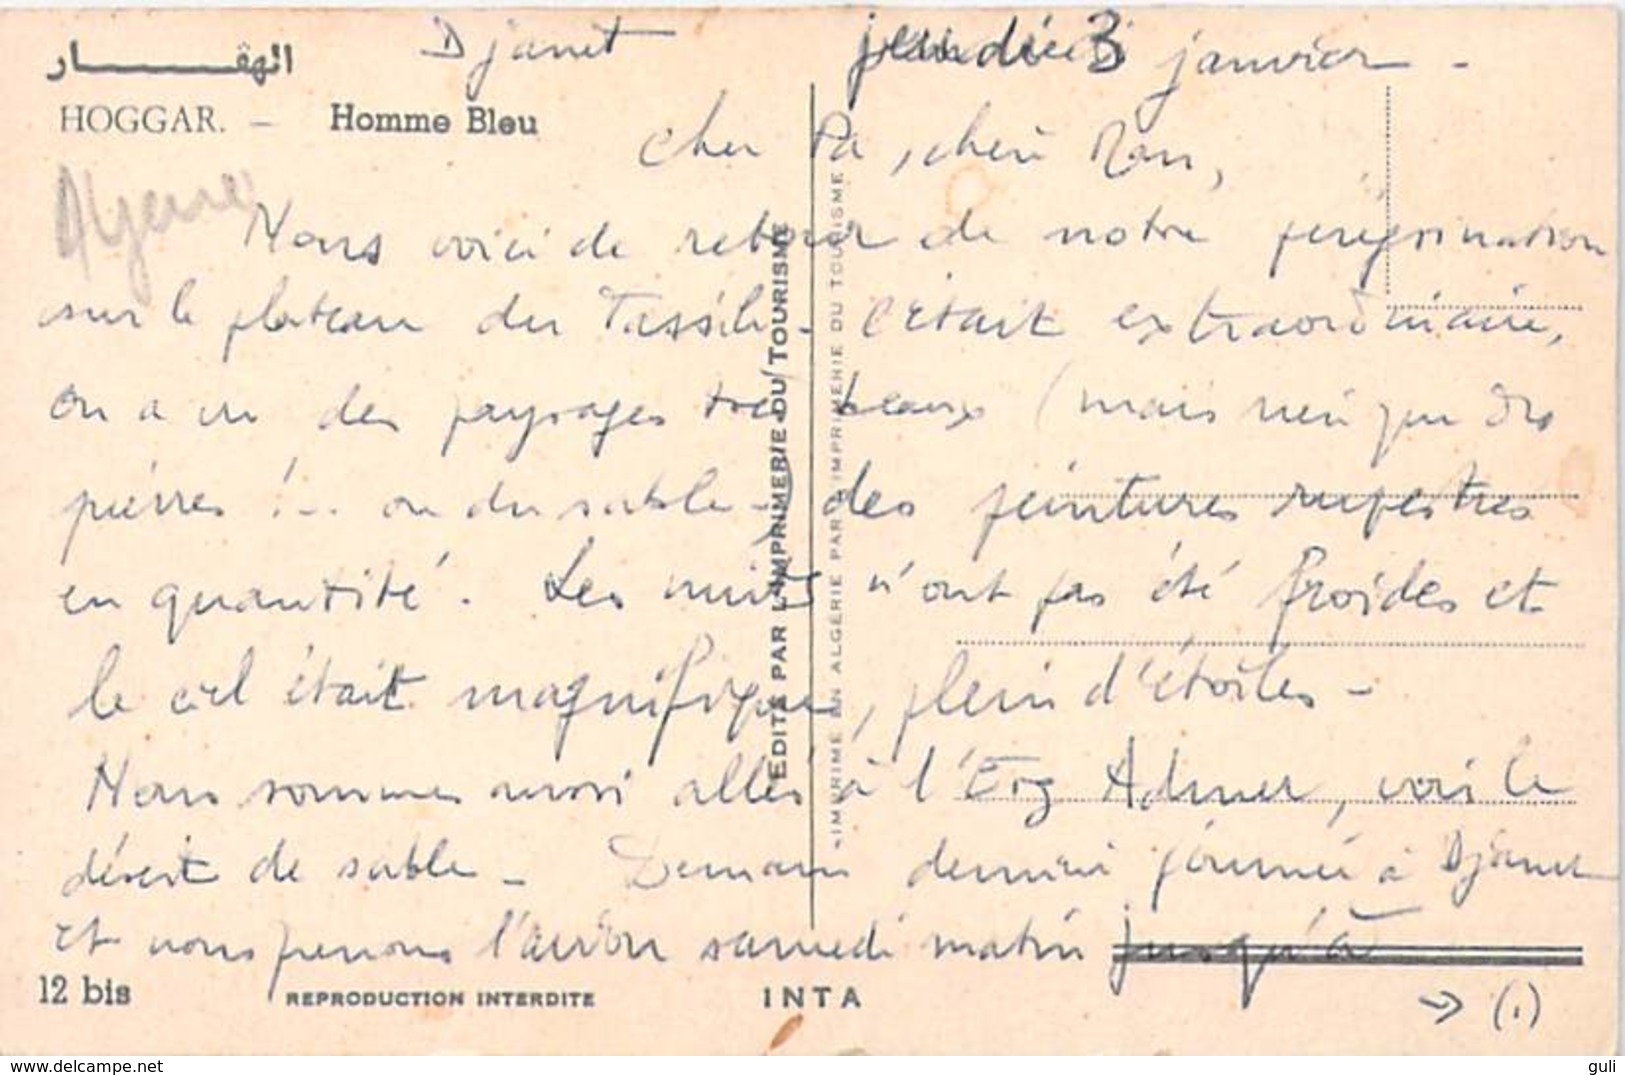 الهڤـــار
HOGGAR. — Homme Bleu
Djanet jeudi 3 janvier -
Algérie
Cher Pa, chère Man,
Nous voici de retour de notre pérégrination
sur le plateau du Tassili - c'était extraordinaire,
on a vu des paysages très beaux (mais rien que des
pierres !... ou du sable -) des peintures rupestres
en quantité. Les nuits n'ont pas été froides et
le ciel était magnifique, plein d'étoiles -
Nous sommes aussi allés à l'Erg Admer, voir le
désert de sable - Demain dernière journée à Djanet
et nous prenons l'avion samedi matin jusqu'à
→ (1)
12 bis REPRODUCTION INTERDITE INTA
EDITÉ PAR L'IMPRIMERIE DU TOURISME
-IMPRIMÉ EN ALGÉRIE PAR L'IMPRIMERIE DU TOURISME
delcampe.net
guli